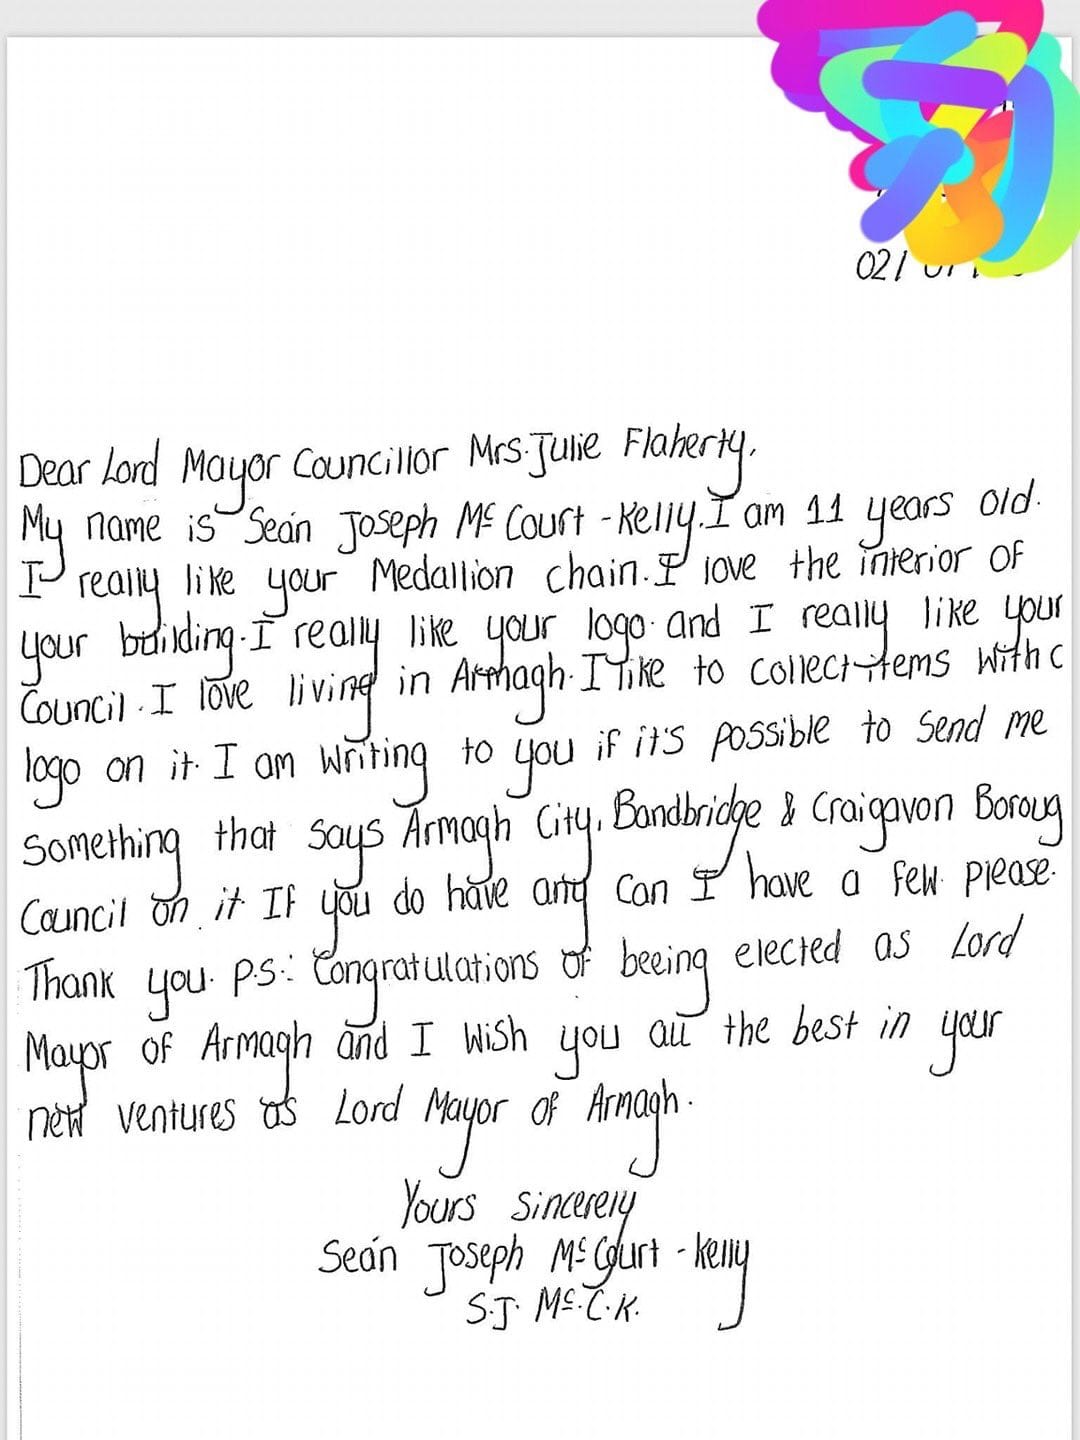 02/
Dear Lord Mayor Councillor Mrs. Julie Flaherty,
My name is Seán Joseph Mc Court - Kelly. I am 11 years old.
I really like your Medallion chain. I love the interior of
your building. I really like your logo and I really like your
Council. I love living in Armagh. I like to collect items with c
logo on it. I am writing to you if it's possible to send me
Something that says Armagh City, Bandbridge & Craigavon Boroug
Council on it If you do have any Can I have a few please.
Thank you. P.S.: Congratulations of beeing elected as Lord
Mayor of Armagh and I wish you all the best in your
new ventures as Lord Mayor of Armagh.
Yours Sincerely
Seán Joseph Mc Court - Kelly
S.J. Mc.C.K.